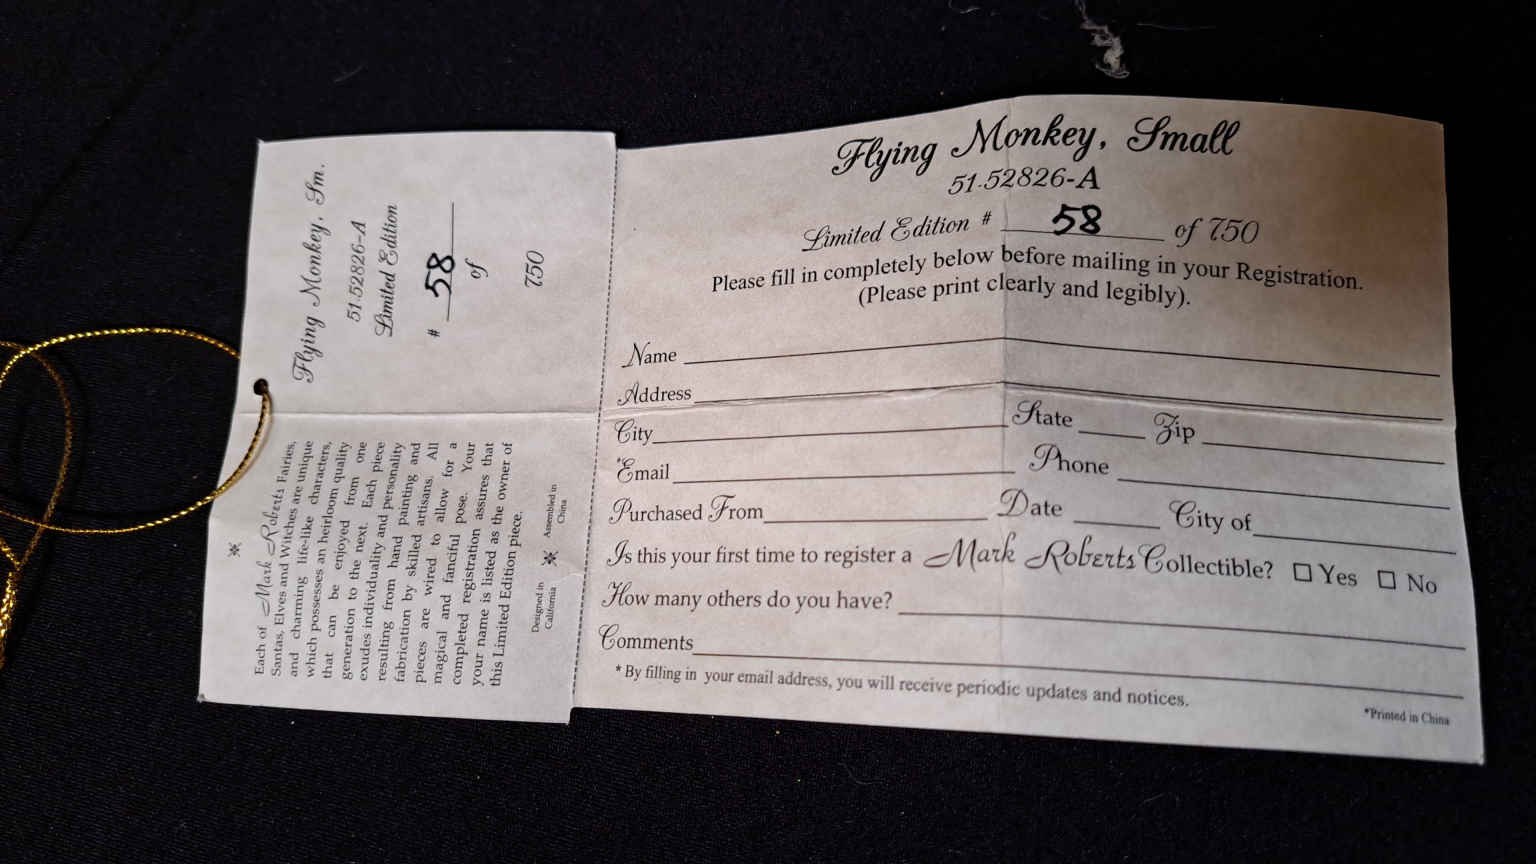 Flying Monkey, Sm.
51-52826-A
Limited Edition
# 58
of
750
Each of Mark Roberts Fairies,
Santas, Elves and Witches are unique
and charming life-like characters,
which possesses an heirloom quality
that can be enjoyed from one
generation to the next. Each piece
exudes individuality and personality
resulting from hand painting and
fabrication by skilled artisans. All
pieces are wired to allow for a
magical and fanciful pose. Your
completed registration assures that
your name is listed as the owner of
this Limited Edition piece.
Designed in
California
Assembled in
China
Flying Monkey, Small
51-52826-A
Limited Edition # 58 of 750
Please fill in completely below before mailing in your Registration.
(Please print clearly and legibly).
Name
Address
City State Zip
*Email Phone
Purchased From Date City of
Is this your first time to register a Mark Roberts Collectible? □ Yes □ No
How many others do you have?
Comments
* By filling in your email address, you will receive periodic updates and notices.
*Printed in China